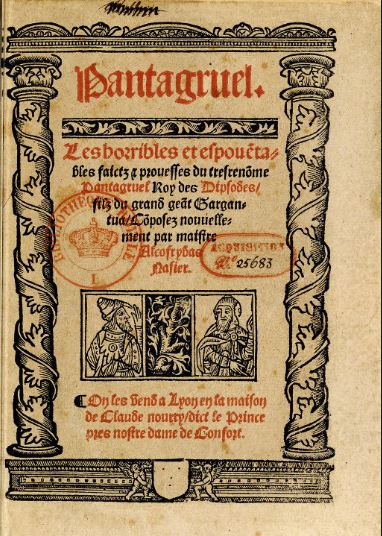 Pantagruel.
Les horribles et espouẽta-
bles faictz ⁊ prouesses du tresrenõme
Pantagruel Roy des Dipsodes/
filz du grand geãt Gargan-
tua/ Cõposez nouuelle-
ment par maistre
Alcofrybas
Nasier.
BIBLIOTHEC
L
ACQUISITION
No 25683
¶On les vend a Lyon en la maison
de Claude nourry/dict le Prince
pres nostre dame de Confort.